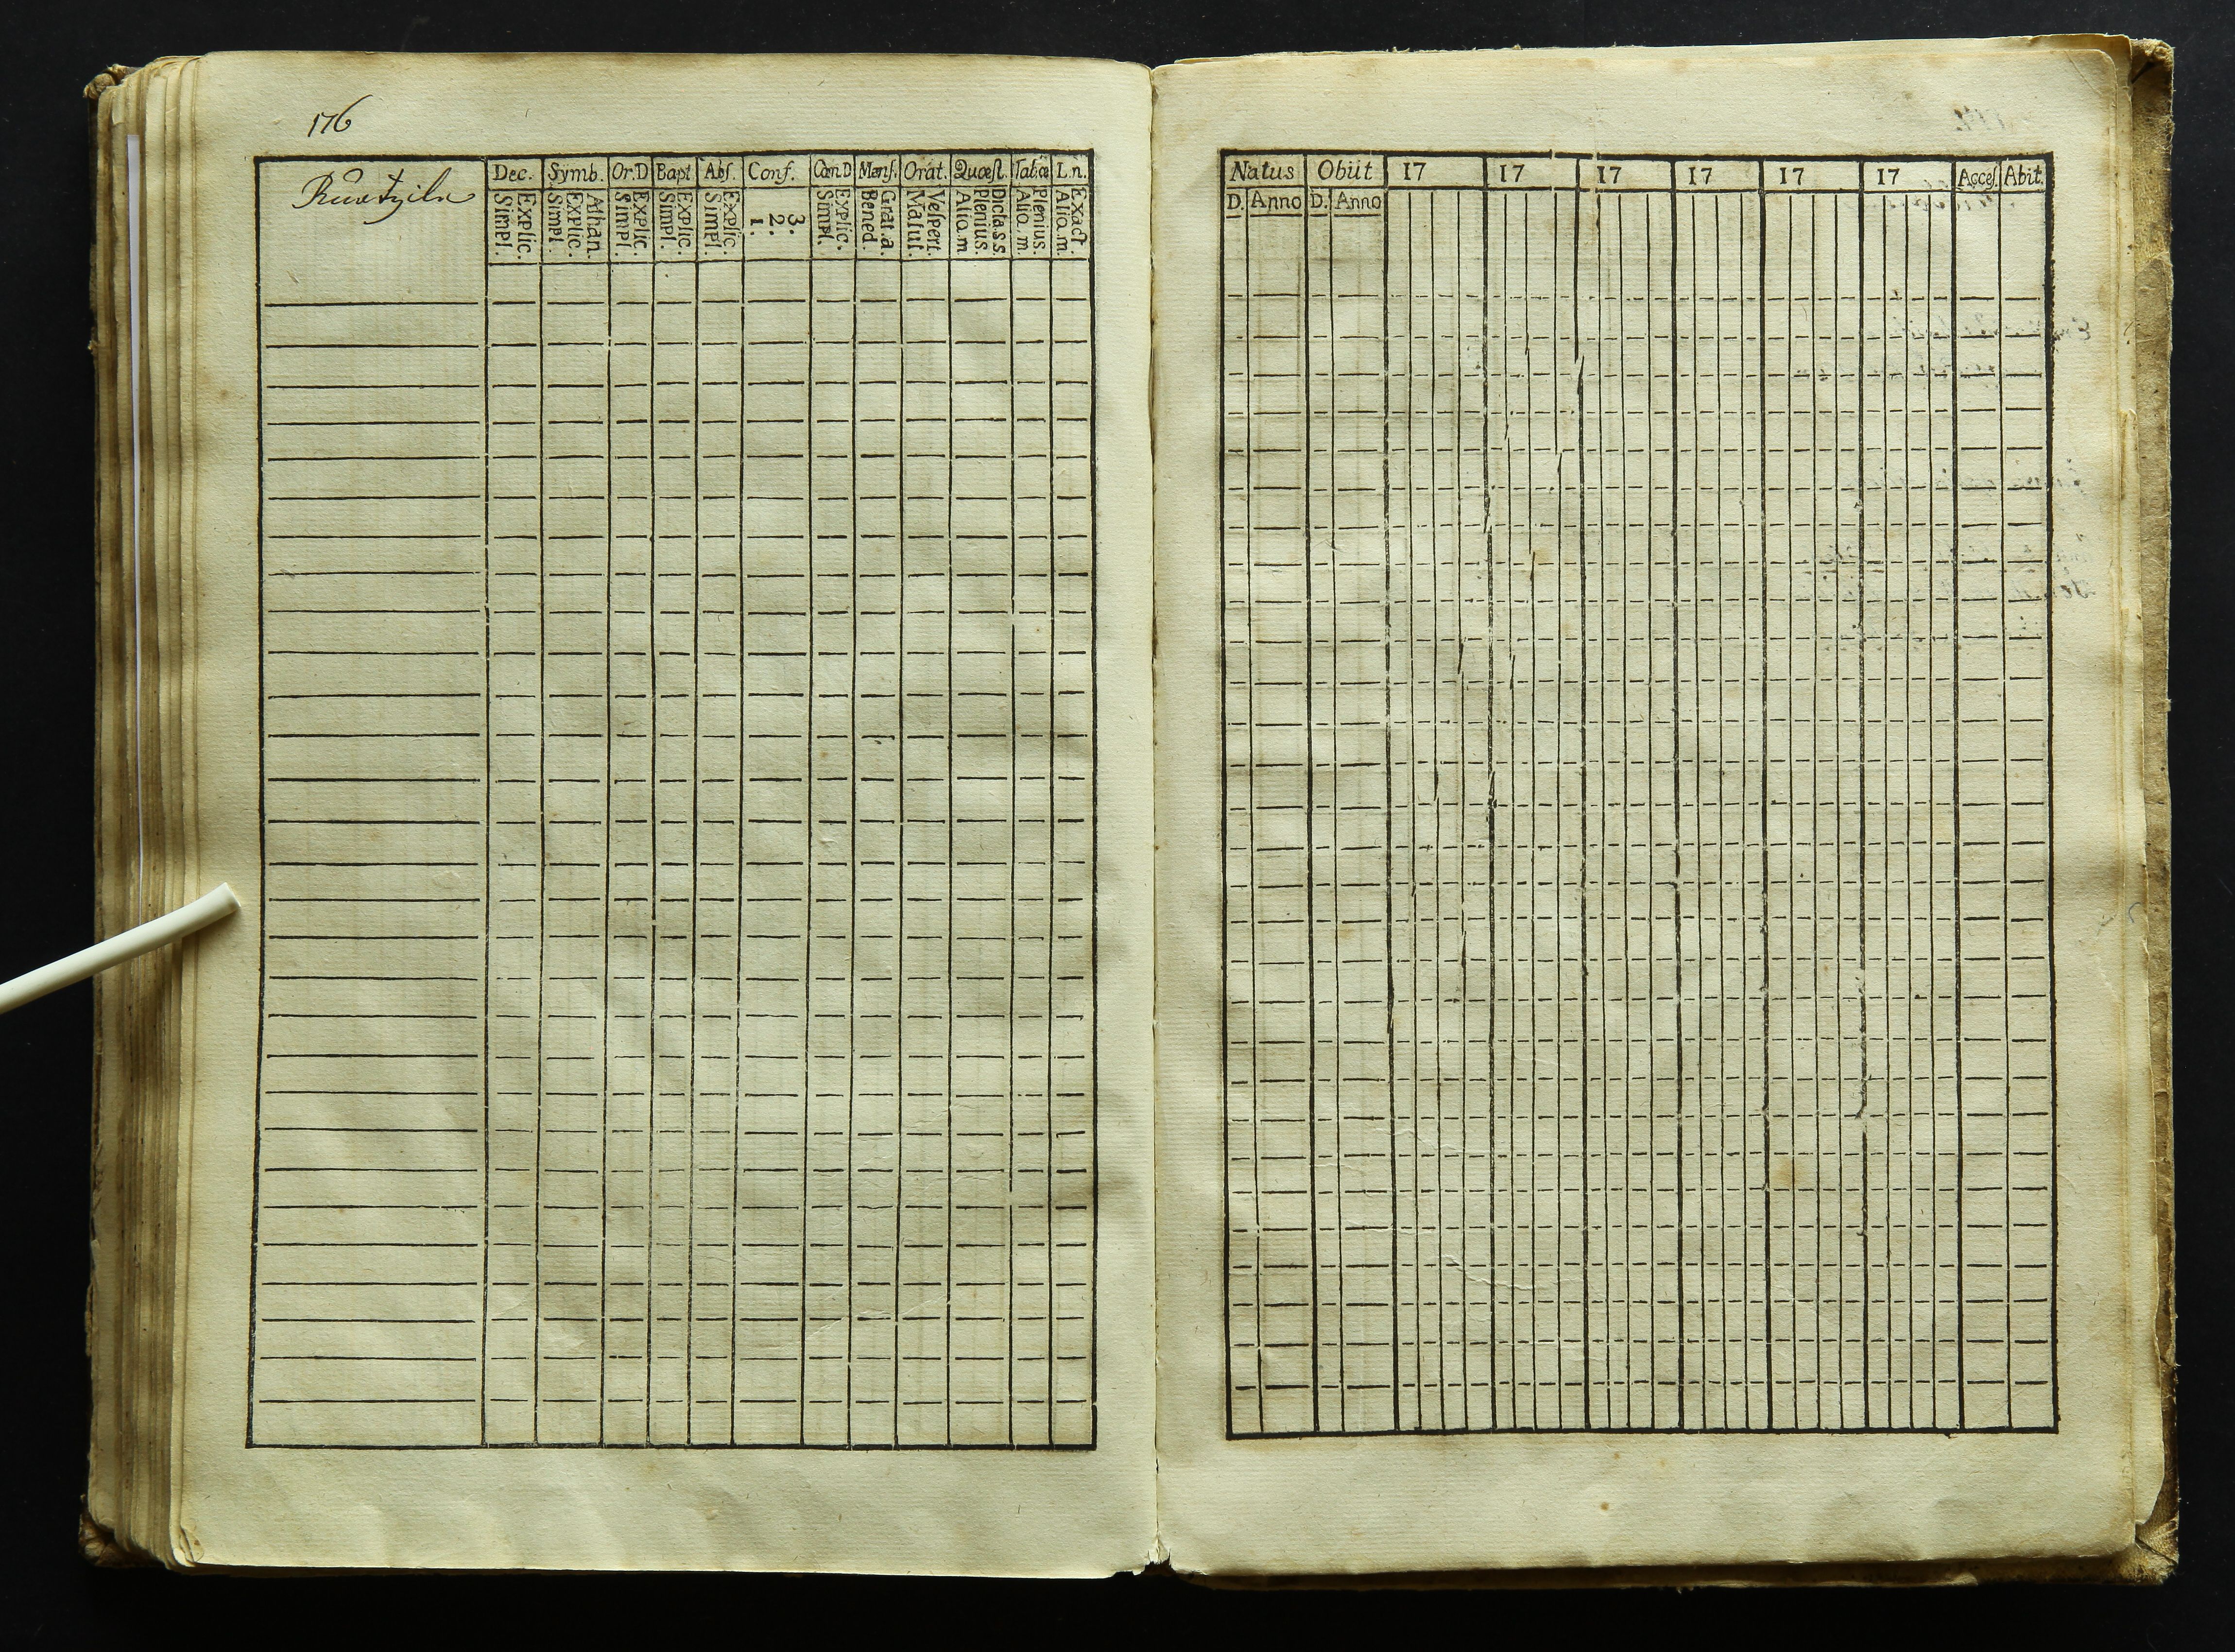 176
Dec. Symb. Or.D Bapt Abſ. Conf. Cœn D Menſ. Orat. Quœſt. Tab.œ L.n.
Simpl. Explic. Simpl. Explic. Athan. Simpl. Explic. Simpl. Explic. Simpl. Explic. 1. 2. 3. Simpl. Explic. Bened. Grat.a. Matut. Veſpert. Alio.m Plenius. Dicta.s.s. Alio.m. Plenius. Alio.m. Exact.
Natus Obiit 17 17 17 17 17 17 Acceſ. Abit.
D. Anno D. Anno